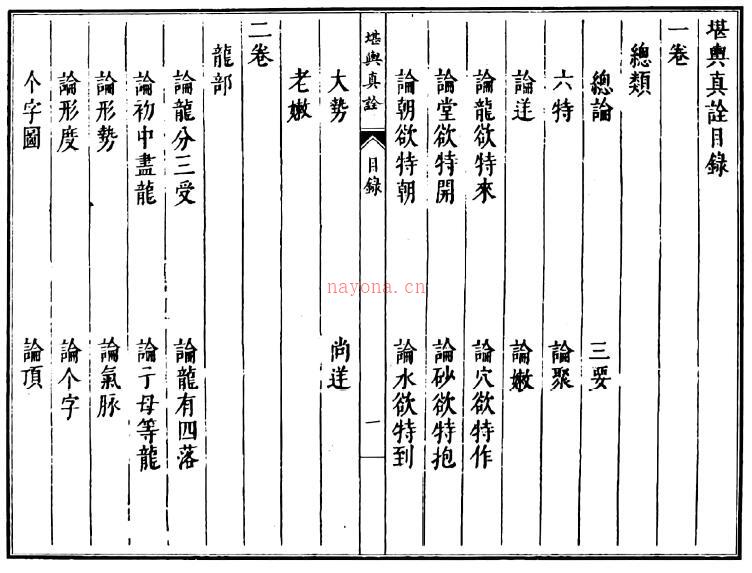 堪輿真詮目錄
一卷
總類
總論 三要
六特 論聚
論送 論嫩
論龍欲特來 論穴欲特作
論堂欲特開 論砂欲特抱
論朝欲特朝 論水欲特到
堪輿真詮 目錄 一
大勢 尚送
老嫩
二卷
龍部
論龍分三受 論龍有四落
論初中盡龍 論子母等龍
論形勢 論氣脉
論形度 論个字
个字圖 論頂
nayona.cn